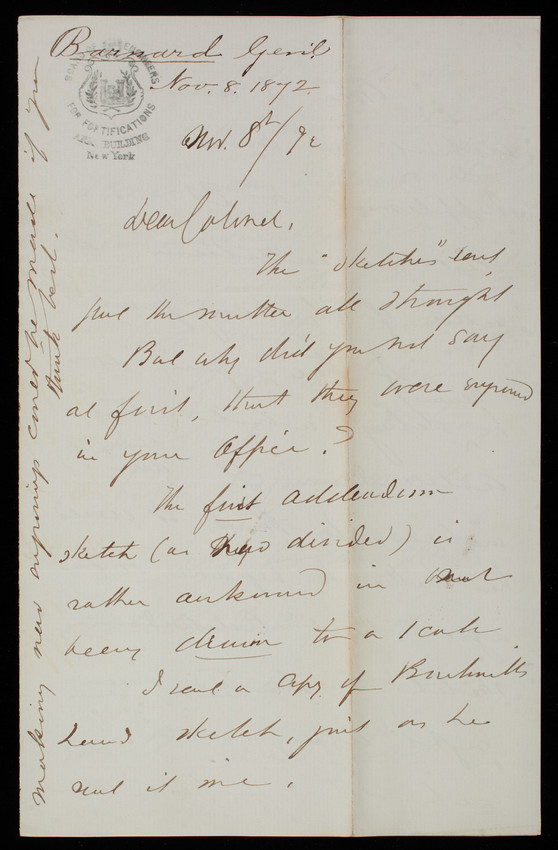 Barnard Genl.
Nov. 8. 1872.
BOARD OF ENGINEERS
FOR FORTIFICATIONS
ARMY BUILDING
New York
Nov. 8th/72
Dear Colonel,
The "sketches" sent
put the matter all straight
But why did you not say
at first, that they were engraved
in your Office?
The first addendum
sketch (as divided) is
rather awkward in not
being drawn to a scale
I send a copy of
hand sketch, just as he
sent it me.
making new engravings could be made if you
think best.